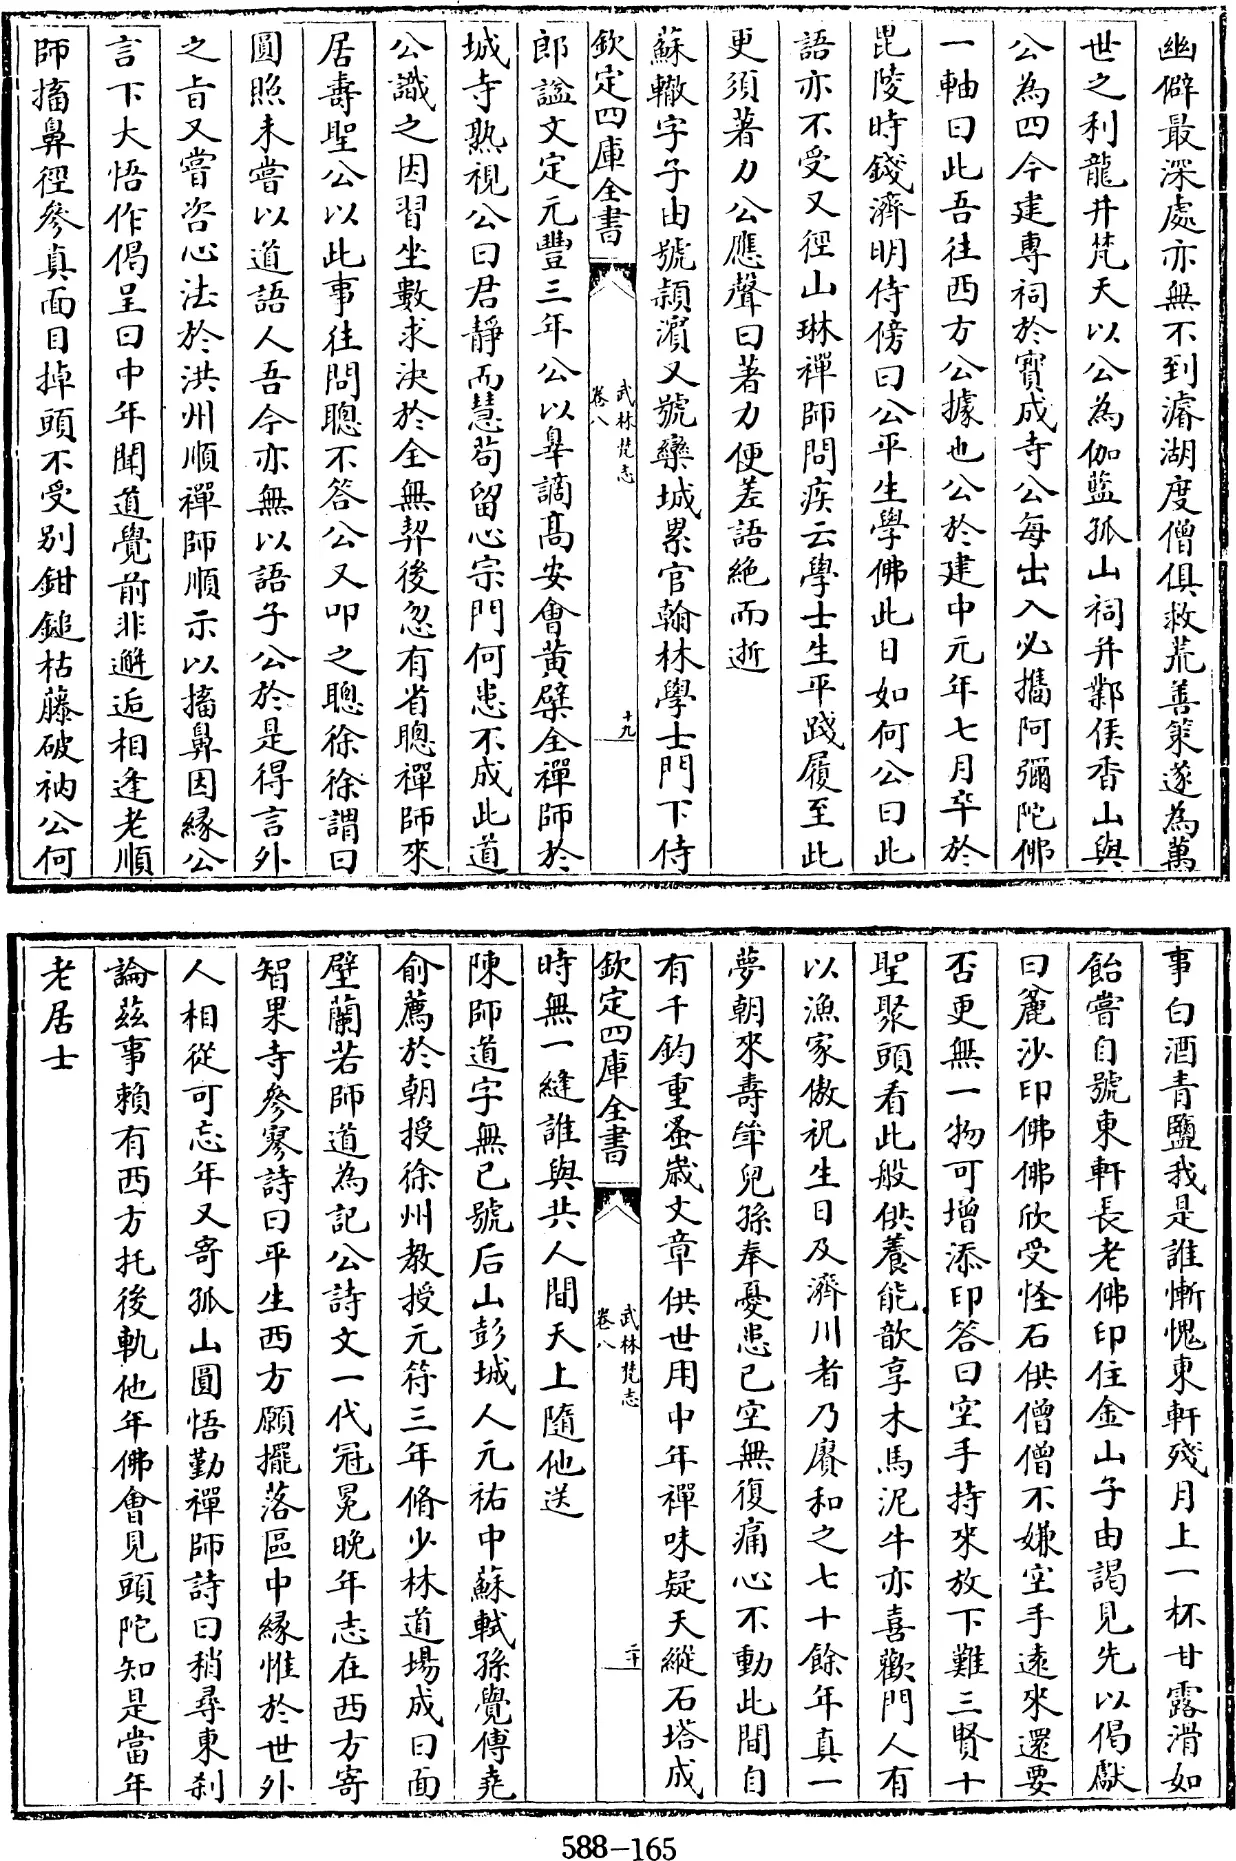 幽僻最深處亦無不到濬湖度僧俱救荒善策遂為萬
世之利龍井梵天以公為伽藍孤山祠并鄴侯香山與
公為四今建專祠於寳成寺公每出入必攜阿彌陀佛
一軸曰此吾往西方公據也公於建中元年七月卒於
毘陵時錢濟明侍傍曰公平生學佛此日如何公曰此
語亦不受又徑山琳禪師問疾云學士生平踐履至此
更須著力公應聲曰著力便差語絶而逝
蘇轍字子由號潁濱又號欒城累官翰林學士門下侍
欽定四庫全書
武林梵志
卷八
十九
郎諡文定元豐三年公以辠謫髙安㑹黄檗全禪師於
城寺熟視公曰君靜而慧苟留心宗門何患不成此道
公識之因習坐數求決於全無契後忽有省聰禪師來
居壽聖公以此事往問聰不答公又叩之聰徐徐謂曰
圓照未嘗以道語人吾今亦無以語子公於是得言外
之旨又嘗咨心法於洪州順禪師順示以搐鼻因緣公
言下大悟作偈呈曰中年聞道覺前非邂逅相逢老順
師搐鼻徑參真面目掉頭不受别鉗鎚枯藤破衲公何
事白酒青鹽我是誰慚愧東軒殘月上一杯甘露滑如
飴嘗自號東軒長老佛印住金山子由謁見先以偈獻
曰麄沙印佛佛欣受怪石供僧僧不嫌空手遠來還要
否更無一物可增添印答曰空手持來放下難三賢十
聖聚頭看此般供養能歆享木馬泥牛亦喜歡門人有
以漁家傲祝生日及濟川者乃賡和之七十餘年真一
夢朝來壽斝兒孫奉憂患已空無復痛心不動此間自
有千鈞重蚤嵗文章供世用中年禪味疑天縱石塔成
欽定四庫全書
武林梵志
卷八
二十
時無一縫誰與共人間天上隨他送
陳師道字無已號后山彭城人元祐中蘇軾孫覺傅堯
俞薦於朝授徐州教授元符三年脩少林道場成曰面
壁蘭若師道為記公詩文一代冠冕晚年志在西方寄
智果寺參寥詩曰平生西方願擺落區中緣惟於世外
人相從可忘年又寄孤山圓悟勤禪師詩曰稍尋東刹
論兹事賴有西方托後軌他年佛㑹見頭陀知是當年
老居士
588-165